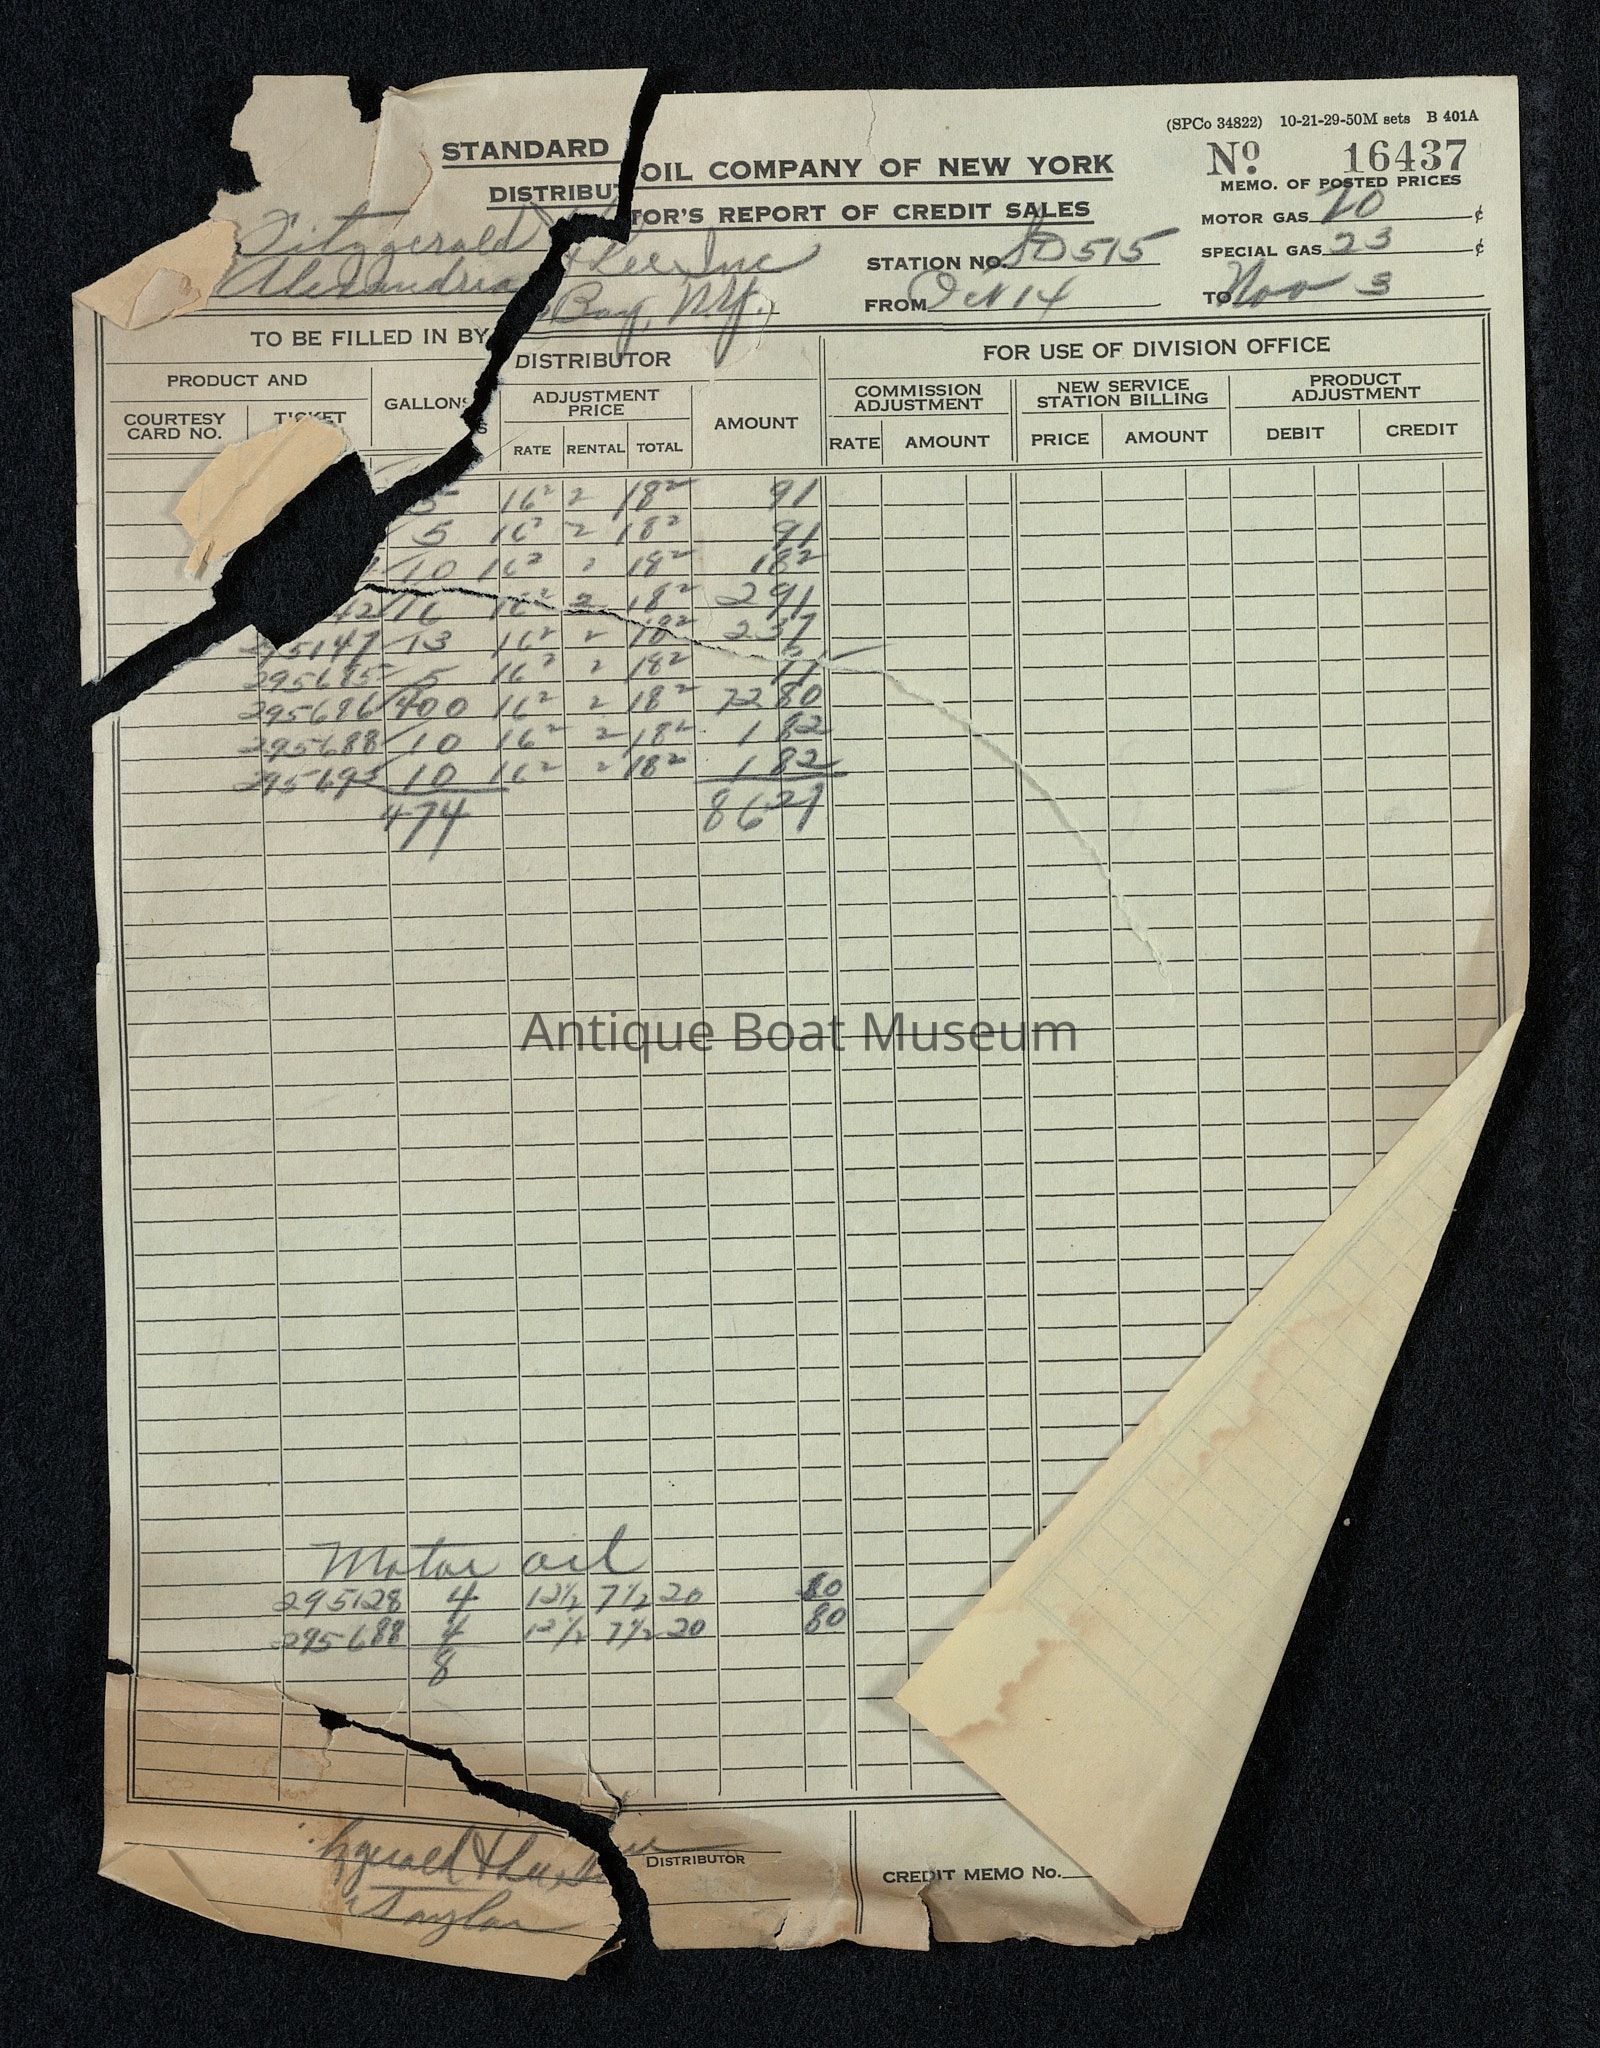 (SPCo 34822) 10-21-29-50M sets B 401A
STANDARD OIL COMPANY OF NEW YORK
No 16437
DISTRIBUTOR'S REPORT OF CREDIT SALES
MEMO. OF POSTED PRICES
MOTOR GAS 20 ¢
Fitzgerald & Lee, Inc
STATION NO. SD 515
SPECIAL GAS 23 ¢
Alexandria Bay, N.Y.
FROM Oct 14 TO Nov 3
TO BE FILLED IN BY DISTRIBUTOR
FOR USE OF DIVISION OFFICE
PRODUCT AND
GALLONS
ADJUSTMENT PRICE
AMOUNT
COMMISSION ADJUSTMENT
NEW SERVICE STATION BILLING
PRODUCT ADJUSTMENT
COURTESY CARD NO. TICKET
RATE RENTAL TOTAL
RATE AMOUNT PRICE AMOUNT DEBIT CREDIT
5 16² 2 18² 91
5 16² 2 18² 91
10 16² 2 18² 1 82
42 16 16² 2 18² 2 91
95147 13 16² 2 18² 2 37
5 16² 2 18² 91
295686 400 16² 2 18² 72 80
295688 10 16² 2 18² 1 82
295695 10 16² 2 18² 1 82
474 86 27
Antique Boat Museum
Motor oil
295128 4 12½ 7½ 20 80
295688 4 12½ 7½ 20 80
8
DISTRIBUTOR
CREDIT MEMO NO.
Taylor